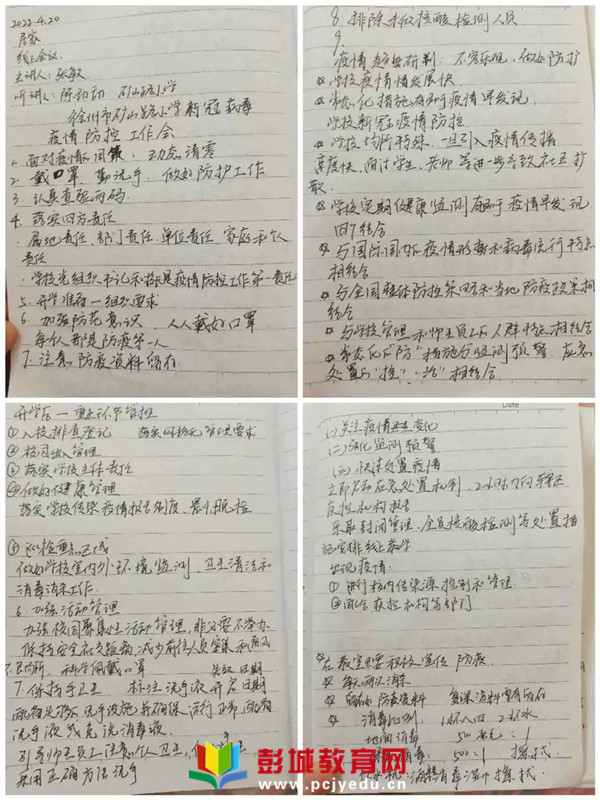 2022.4.20
居家
线上会议
主讲人:张敏
听讲人:陈劲劲 矿山路小学
徐州市矿山路小学新冠病毒
疫情防控工作会
1. 面对疫情 动态清零
2. 戴口罩 勤洗手 做好防护工作
3. 认真查验两码
4. 落实四方责任
·属地责任,部门责任,单位责任 家庭和个人
责任
·学校党组织书记和校长是疫情防控工作第一责任人
5. 开学准备一组织要求
6. 加强防范意识 人人戴好口罩
每个人都是防疫第一人
7. 注意防疫资料留存
8. 排除未做核酸检测人员
9.
疫情趋势研判:不容乐观,做好防护
学校疫情情发展快
常态化措施有助于疫情早发现
学校新冠疫情防控
学校场所特殊,一旦引入疫情传播
速度快,通过学生、老师等进一步导致社区扩
散.
学校定期健康监测有助于疫情早发现
四个结合
与国际国内疫情形势和病毒流行特点
相结合
与全国整体防控策略和当地防疫政策相
结合
与学校管理和师生员工人群特点相结合
常态化下"防"措施与监测预警 应急
处置的"控""治"相结合
开学后一重点环节管控
①入校排查登记 落实网格化管理要求
②校园出入管理
③落实学校主体责任
④做好健康管理
落实学校传染疫情报告制度、晨午晚检
⑤ 重点区域
做好学校室内外环境监测、卫生清洁和
消毒消杀工作.
6. 加强活动管理
加强校园聚集性活动管理,非必要不举办
保持安全社交距离,减少前往人员密集和通风
不良场所. 科学佩戴口罩 失效日期
7. 保持手卫生 标注洗手液开启日期
配备足够洗手设施并确保运行正常,配备
洗手液或免洗消毒液.
引导师生员工注意个人卫生,
采用正确方法洗手
Date
(一)关注疫情发生变化
(二)强化监测预警
(三)快速处置疫情
立即启动应急处置机制,2小时内向辖区
疾控机构报告
采取封闭管理、全员核酸检测等处置措
施安排线上教学
出现疫情:
①进行校内传染源控制和管理
②配合疾控机构等部门
在教室里要积极宣传防疫.
每天两次消杀
留好防疫资料
消毒比例: 1杯八四 2杯水
地面消毒
500:1 擦拭
彭城教育网
www.pcjyedu.cn